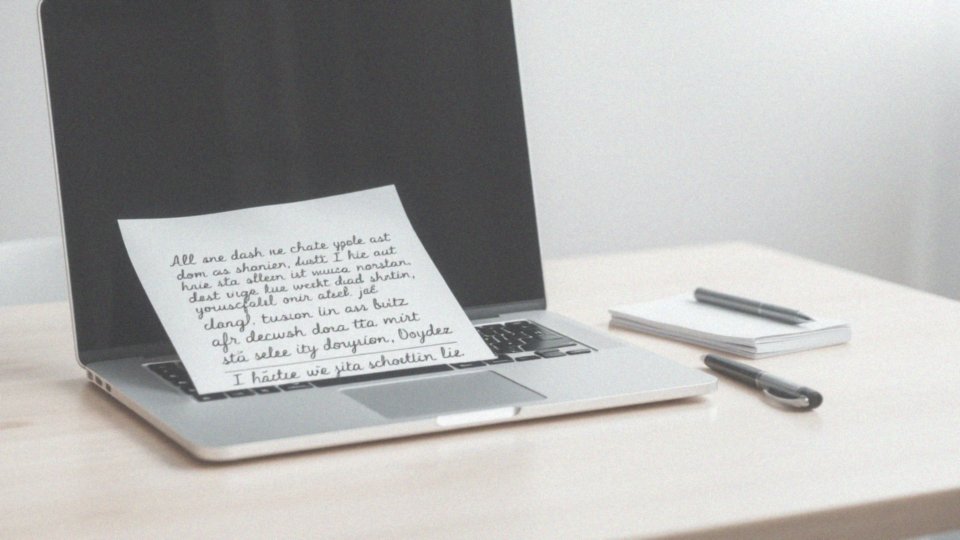 All ane dash ne chate ypole ast
dom as shanien, dustt I hie aut
hnie sta allein ist muuca norstan,
dest uige liue weckt diad shntin,
youuscfalul onir atsel. jaé
clangl, tusion lin ass buitz
afr decwsh dona tta mirt
stā selee ity doryrion, Doydez
I hāitie we jita schoetlin lie